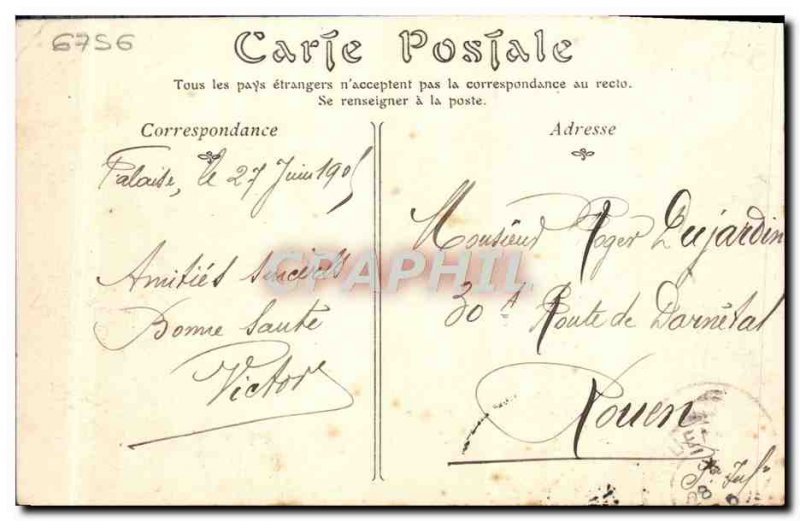 6756
Carte Postale
Tous les pays étrangers n'acceptent pas la correspondance au recto.
Se renseigner à la poste.
Correspondance
Falaise, le 27 Juin 1905
Amitiés sincères
Bonne Santé
Victor
Adresse
Monsieur Roger Dujardin
30 A Route de Darnétal
Rouen
S. Inf
CPAPHIL